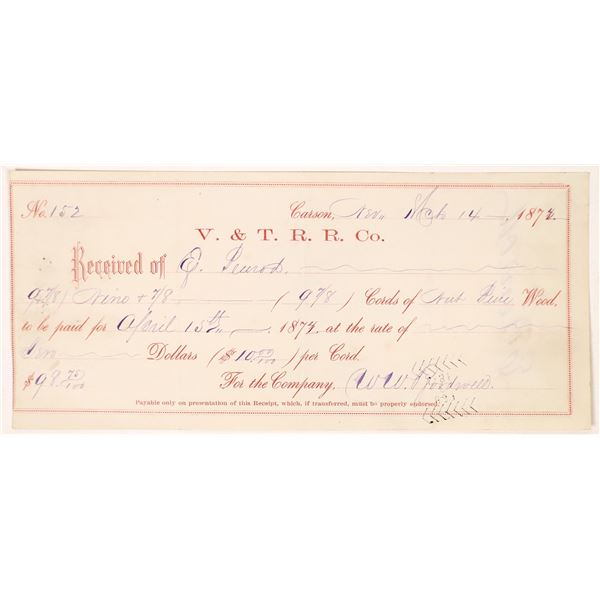 No. 152 Carson, Nev. Mch 14 1872
V. & T. R. R. Co.
Received of E. Penrod
9 7/8 Nine & 7/8 ( 9 7/8 ) Cords of Nut Pine Wood,
to be paid for April 15th 1872 at the rate of
Ten Dollars ($10 00/100) per Cord.
$98 75/100 For the Company,
Payable only on presentation of this Receipt, which, if transferred, must be properly endorsed.